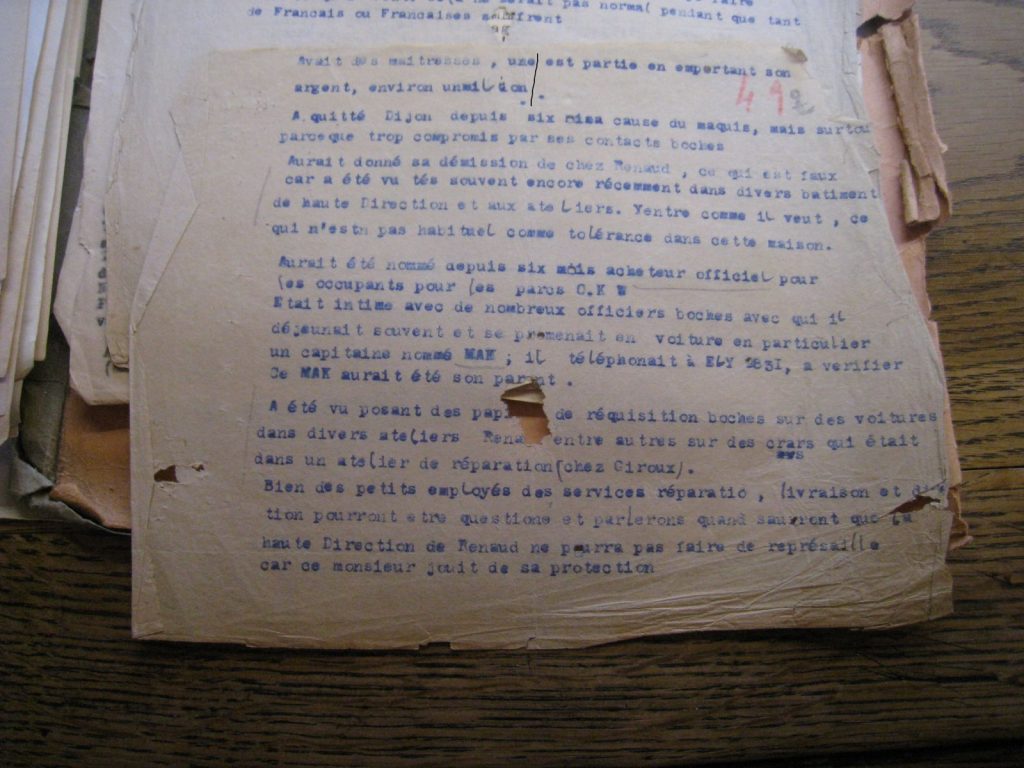 pas normal pendant que tant
de Francais ou Francaises souffrent
Avait des maitresses , une est partie en emportant son
argent, environ unmilion .
492
A quitté Dijon depuis six misa cause du maquis, mais surtou
parceque trop compromis par ses contacts boches
Aurait donné sa démission de chez Renaud , ce qui est faux
car a été vu tés souvent encore récemment dans divers batiment
de haute Direction et aux ateliers. Yentre comme il veut , ce
qui n'estn pas habituel comme tolérance dans cette maison.
Aurait été nommé depuis six mois acheteur officiel pour
les occupants pour les parcs C.K W
Etait intime avec de nombreux officiers boches avec qui il
déjeunait souvent et se promenait en voiture en particulier
un capitaine nommé MAK ; il téléphonait à ELY 2831, a verifier
Ce MAK aurait été son parent .
A été vu posant des de réquisition boches sur des voitures
dans divers ateliers entre autres sur des crars qui était
dans un atelier de réparation(chez Giroux).
Bien des petits employés des services réparatio , livraison et
tion pourront etre questioné et parlerons quand sauxront que la
haute Direction de Renaud ne pourra pas faire de représaille
car ce monsieur jouit de sa protection